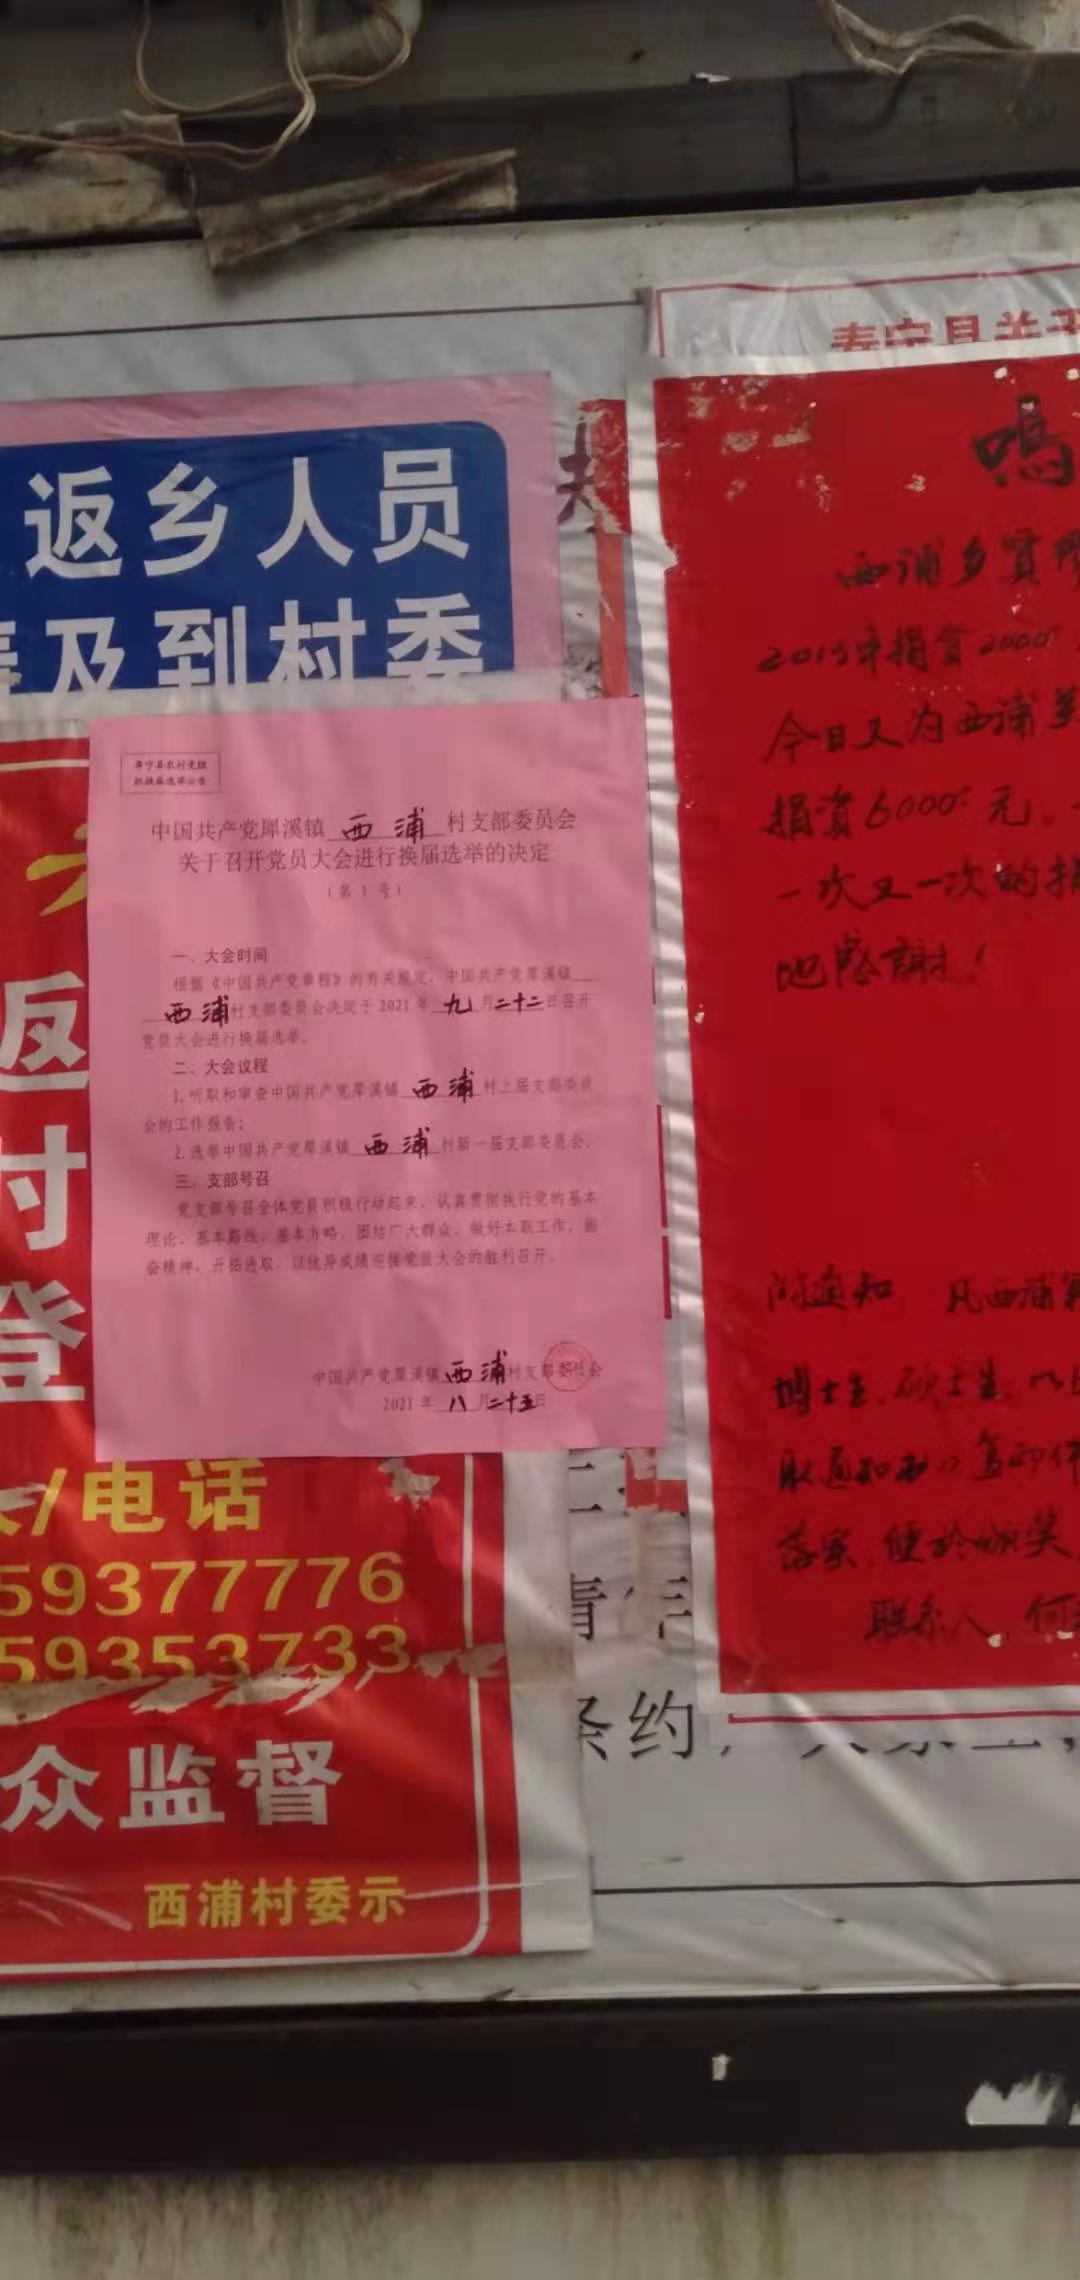 返乡人员
及到村委
寿宁县农村党组
织换届选举公告
中国共产党犀溪镇 西浦 村支部委员会
关于召开党员大会进行换届选举的决定
（第1号）
一、大会时间
根据《中国共产党章程》的有关规定，中国共产党犀溪镇
西浦 村支部委员会决定于2021年 九 月 二十二 日召开
党员大会进行换届选举。
二、大会议程
1.听取和审查中国共产党犀溪镇 西浦 村上届支部委员
会的工作报告；
2.选举中国共产党犀溪镇 西浦 村新一届支部委员会。
三、支部号召
党支部号召全体党员积极行动起来，认真贯彻执行党的基本
理论、基本路线、基本方略，团结广大群众，做好本职工作，振
奋精神，开拓进取，以优异成绩迎接党员大会的胜利召开。
中国共产党犀溪镇 西浦 村支部委员会
2021年 八 月 二十五 日
返
村
登
/电话
59377776
59353733
众监督
西浦村委示
寿宁县关于
鸣
西浦乡贤
捐资2000
今日又为西浦
捐资6000元
一次又一次的捐
地感謝！
附通知 凡西浦
博士生、硕士生、以
取通知书复印件
落实，便於颁奖
联系人，何
条约，